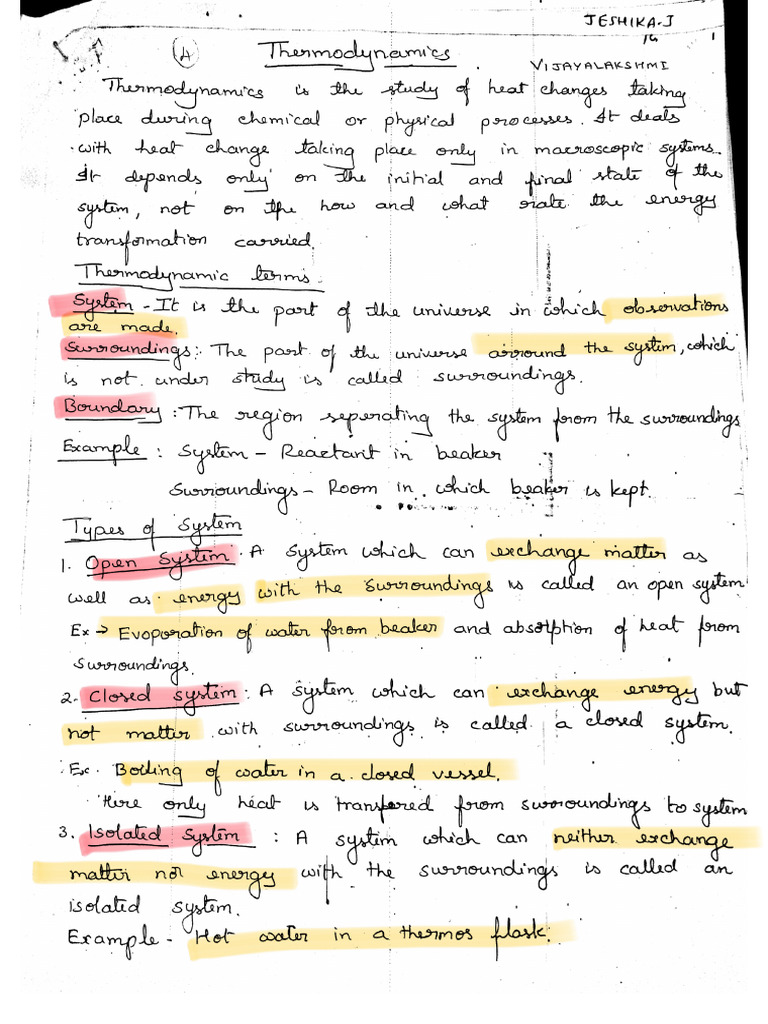 JESHIKA.J
(A) Thermodynamics
VIJAYALAKSHMI
Thermodynamics is the study of heat changes taking
place during chemical or physical processes. It deals
with heat change taking place only in macroscopic systems.
It depends only on the initial and final state of the
system, not on the how and what rate the energy
transformation carried.
Thermodynamic terms.
System - It is the part of the universe in which observations
are made.
Surroundings: The part of the universe arround the system, which
is not under study is called surroundings.
Boundary : The region seperating the system from the surroundings
Example : System - Reactant in beaker
Surroundings - Room in which beaker is kept.
Types of System
1. Open System. A system which can exchange matter as
well as energy with the surroundings is called an open system
Ex → Evoporation of water from beaker and absorption of heat from
surroundings.
2. Closed system : A system which can exchange energy but
not matter with surroundings is called a closed system.
Ex. Boiling of water in a closed vessel.
Here only heat is transfered from surroundings to system
3. Isolated System : A system which can neither exchange
matter nor energy with the surroundings is called an
isolated system.
Example - Hot water in a thermos flask.